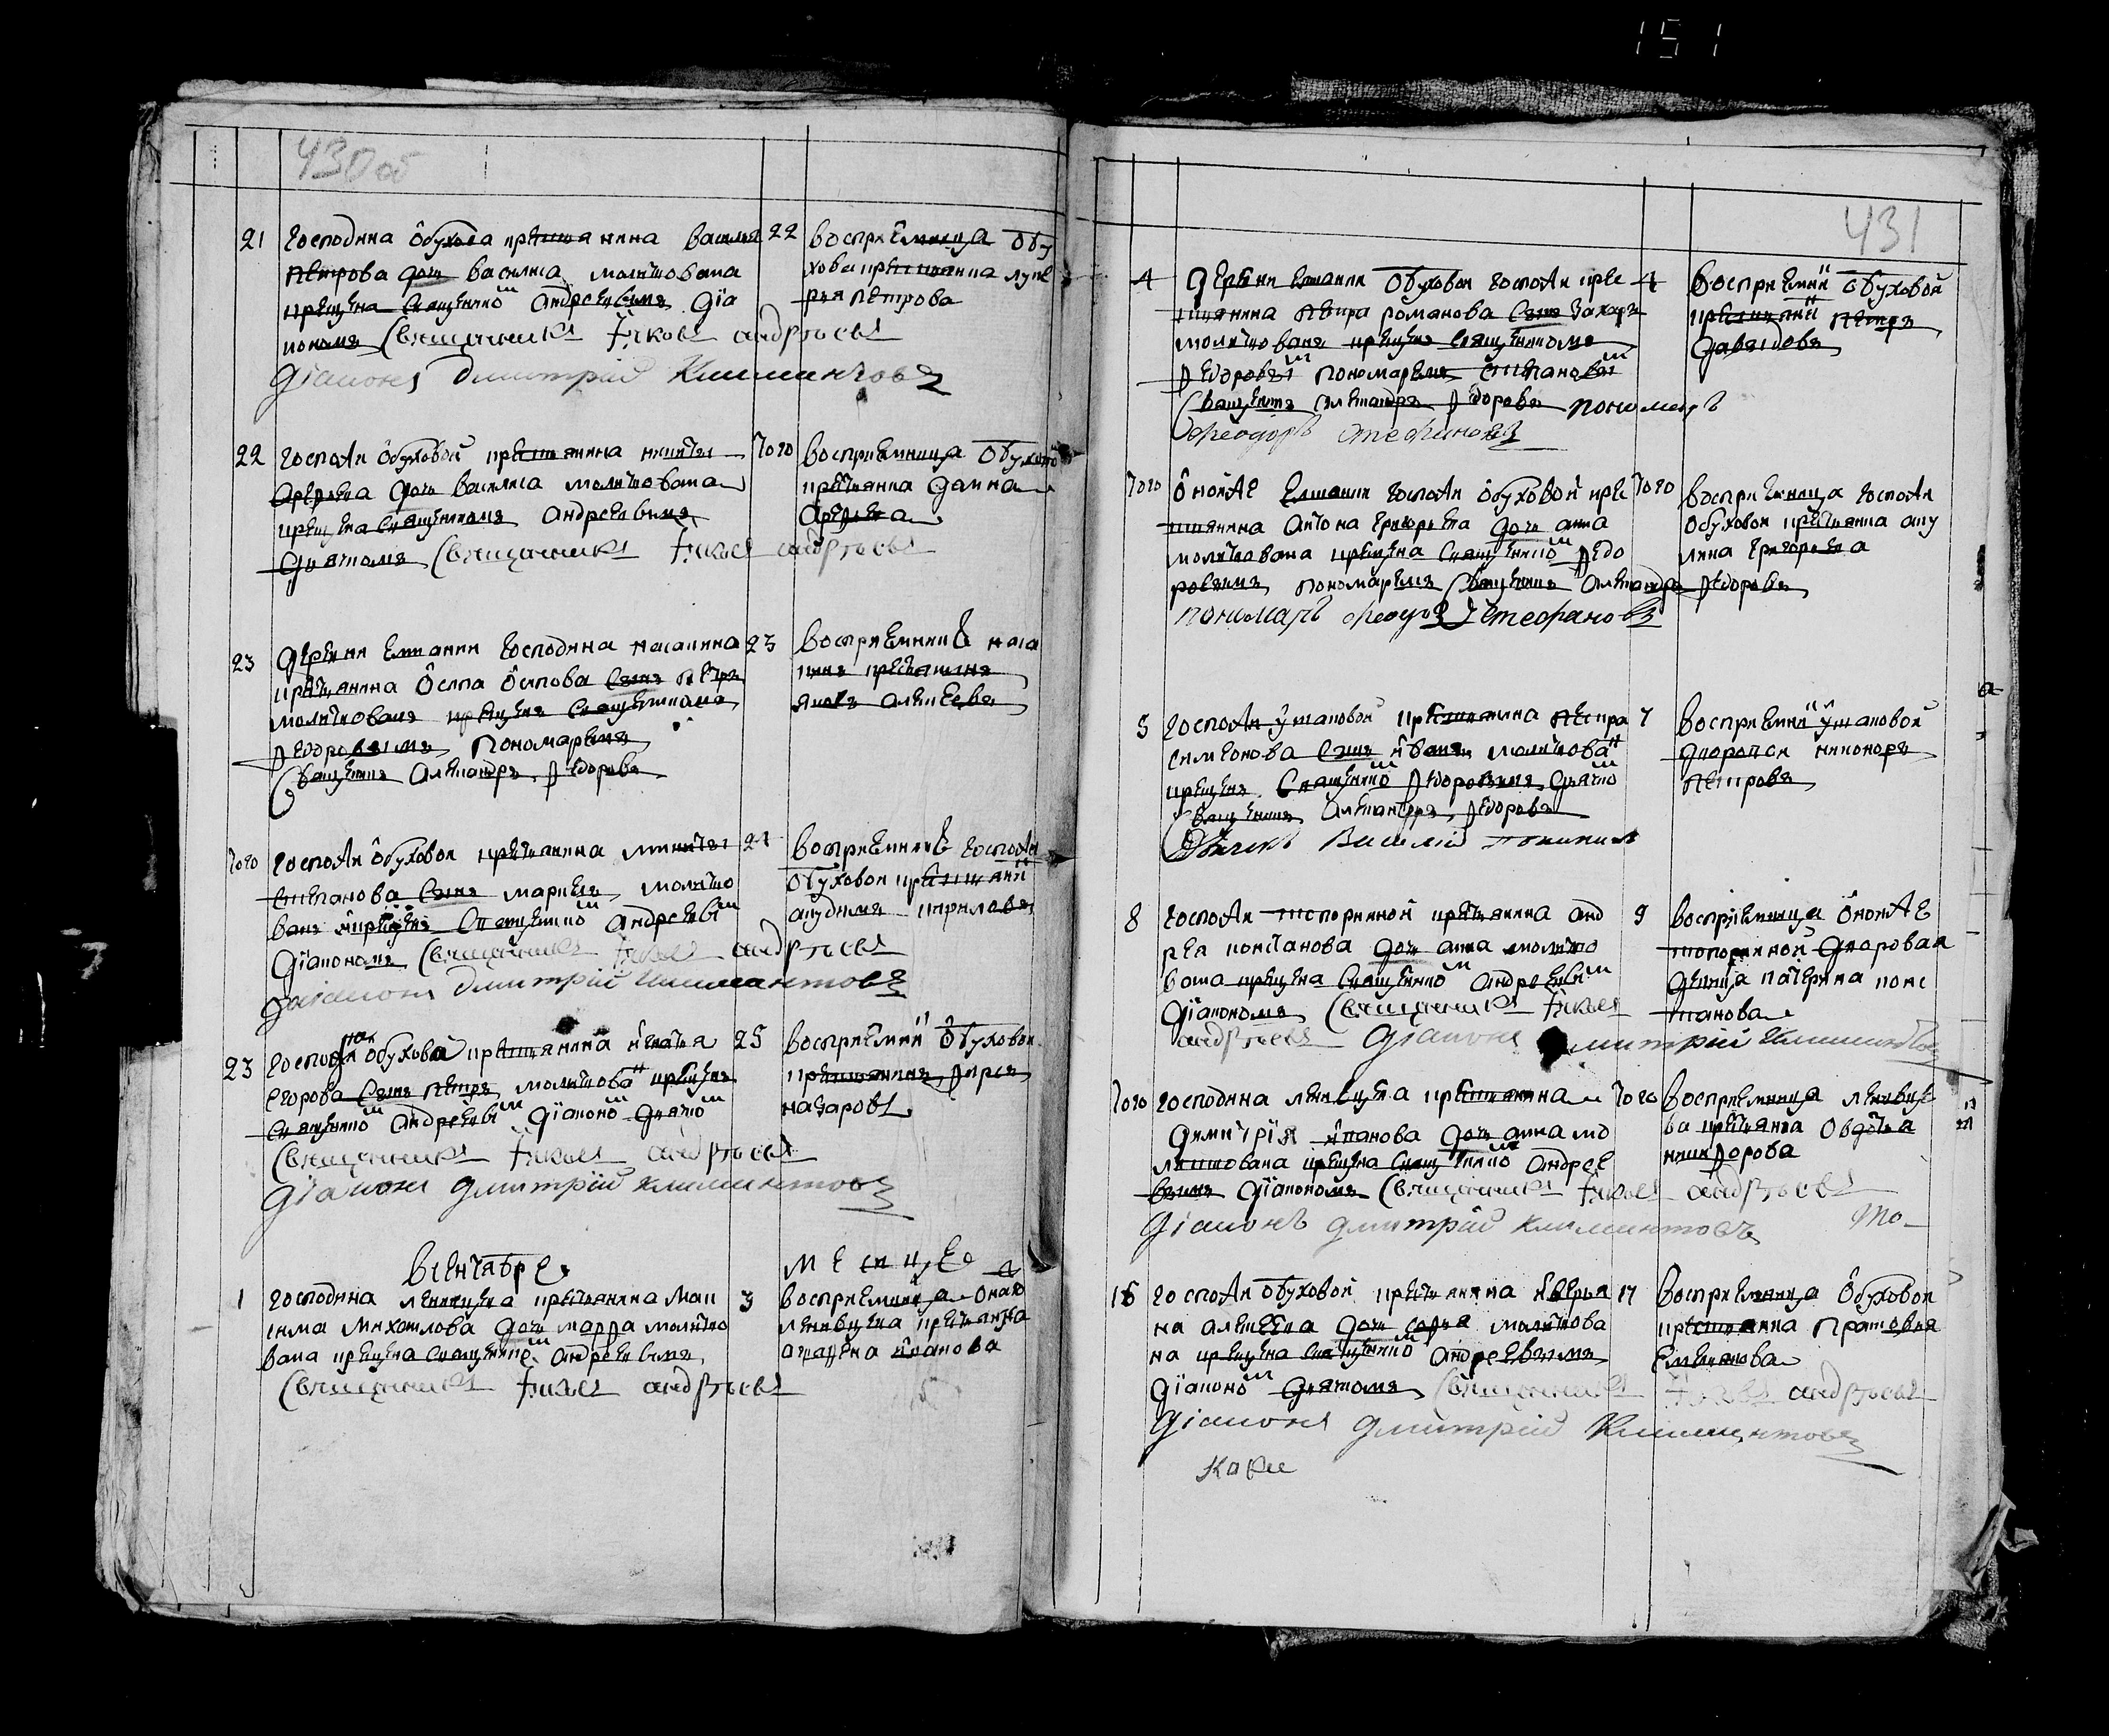 151
430 об
21 господина Обухова крестьянина Василья 22
Петрова дочь Василиса молитвована
крещена священником Андреевым дья
коном Священникъ Иаковъ Андреевъ
Диаконъ Димитрий Климентовъ
восприемница Обу
хова крестьянка Луке
рья Петрова
22 госпожи Обуховой крестьянина Никиты того
Арефьева дочь Василиса молитвована
крещена священникомъ Андреевымъ
дьячкомъ Священникъ Иаковъ Андреевъ
восприемница Обуховой
крестьянка Домна
Арефьева
23 деревни господина 23
крестьянина Осипа Осипова сынъ Петръ
молитвованъ крещенъ священникомъ
Федоровымъ пономаремъ
Священникъ Александръ Федоровъ
восприемникъ
крестьянинъ
Яковъ Алексеевъ
того госпожи Обуховой крестьянина Никиты 24
Степанова сынъ молитво
ванъ и крещенъ священником Андреевым
диакономъ Священникъ Иаковъ Андреевъ
Диаконъ Димитрий Климантовъ
восприемникъ госпожи
Обуховой крестьянин
Кириловъ
23 госпожи Обуховой крестьянина Игнатья 25
Егорова сынъ Петръ молитвован крещенъ
священником Андреевым диаконом дьячком
Священникъ Иаковъ Андреевъ
Диаконъ Дмитрий Климентовъ
восприемник Обуховой
крестьянинъ
Назаровъ
в сентябре месяце
1 господина Ленивцева крестьянина Мак 3
сима Михаилова дочь Марфа молитво
вана крещена священником Андреевымъ
Священникъ Иаковъ Андреевъ
восприемница оного
Ленивцева крестьянка
Аграфена Иванова
431
4 деревни Обуховой госпожи кре 4
стьянина Петра Романова сынъ Захаръ
молитвованъ крещенъ священникомъ
Федоровым пономаремъ Степановым
Священникъ Александръ Федоровъ пономарь
Феодоръ Стефановъ
восприемник Обуховой
крестьянин Петръ
Давыдовъ
того оной же госпожи Обуховой кре того
стьянина Антона Григорьева дочь Анна
молитвована крещена священником Федо
ровымъ пономаремъ Священникъ Александръ Федоровъ
пономарь Феодоръ Стефановъ
восприемница госпожи
Обуховой крестьянка Аку
лина Григорьева
5 госпожи Ушаковой крестьянина Петра 7
Симеонова сынъ Иванъ молитвован
крещенъ священником Федоровымъ дьячком
Священникъ Александръ Федоровъ
Дьячекъ Василий
восприемник Ушаковой
дворовой Никоноръ
Петровъ
8 госпожи Топорниной крестьянина Анд 9
рея Констанова дочь Анна молитво
вана крещена священником Андреевым
диакономъ Священникъ Иаковъ
Андреевъ Диаконъ Димитрий Климентовъ
восприемница оной же
Топорниной дворовая
девица Катерина Конс
танова
того господина Ленивцева крестьянина того
Димитрия Иванова дочь Анна мо
литвована крещена священником Андрее
вымъ диакономъ Священникъ Иаковъ Андреевъ
Диаконъ Дмитрий Климентовъ
восприемница Ленивце
ва крестьянка Овдотья
Никифорова
16 госпожи Обуховой крестьянина Аверья 17
на Алексеева дочь Софья молитвова
на крещена священником Андреевымъ
диаконом дьячкомъ Священникъ Иаковъ Андреевъ
Диаконъ Дмитрий Климентовъ
восприемница Обуховой
крестьянка Прасковья
Емельянова